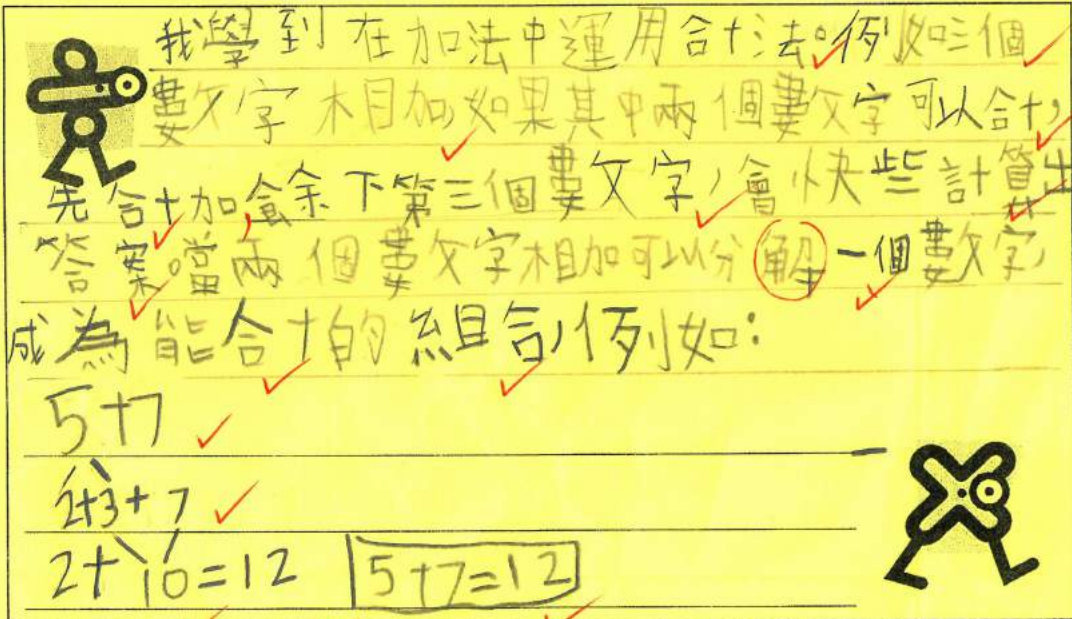 我學到在加法中運用合十法。例如三個
數文字相加,如果其中兩個數文字可以合十,
先合十加,餘下第三個數文字,會快些計算出
答案。當兩個數文字相加可以分解一個數文字,
成為能合十的組合,例如:
5+7
2+3+7
2+10=12 5+7=12